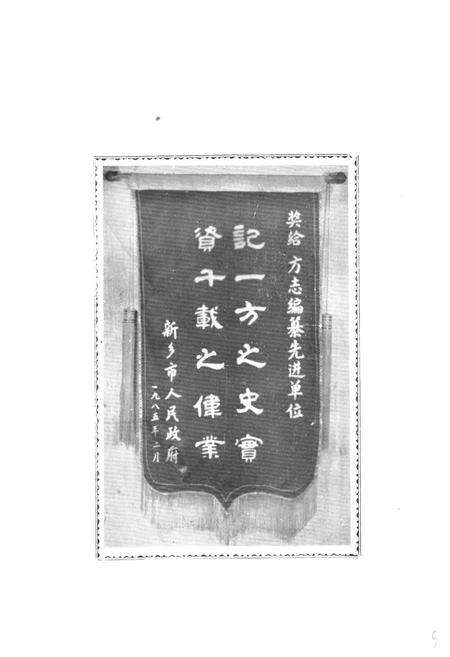 奖给 方志编纂先进单位
記一方之史實
資千載之偉業
新乡市人民政府
一九八五年二月